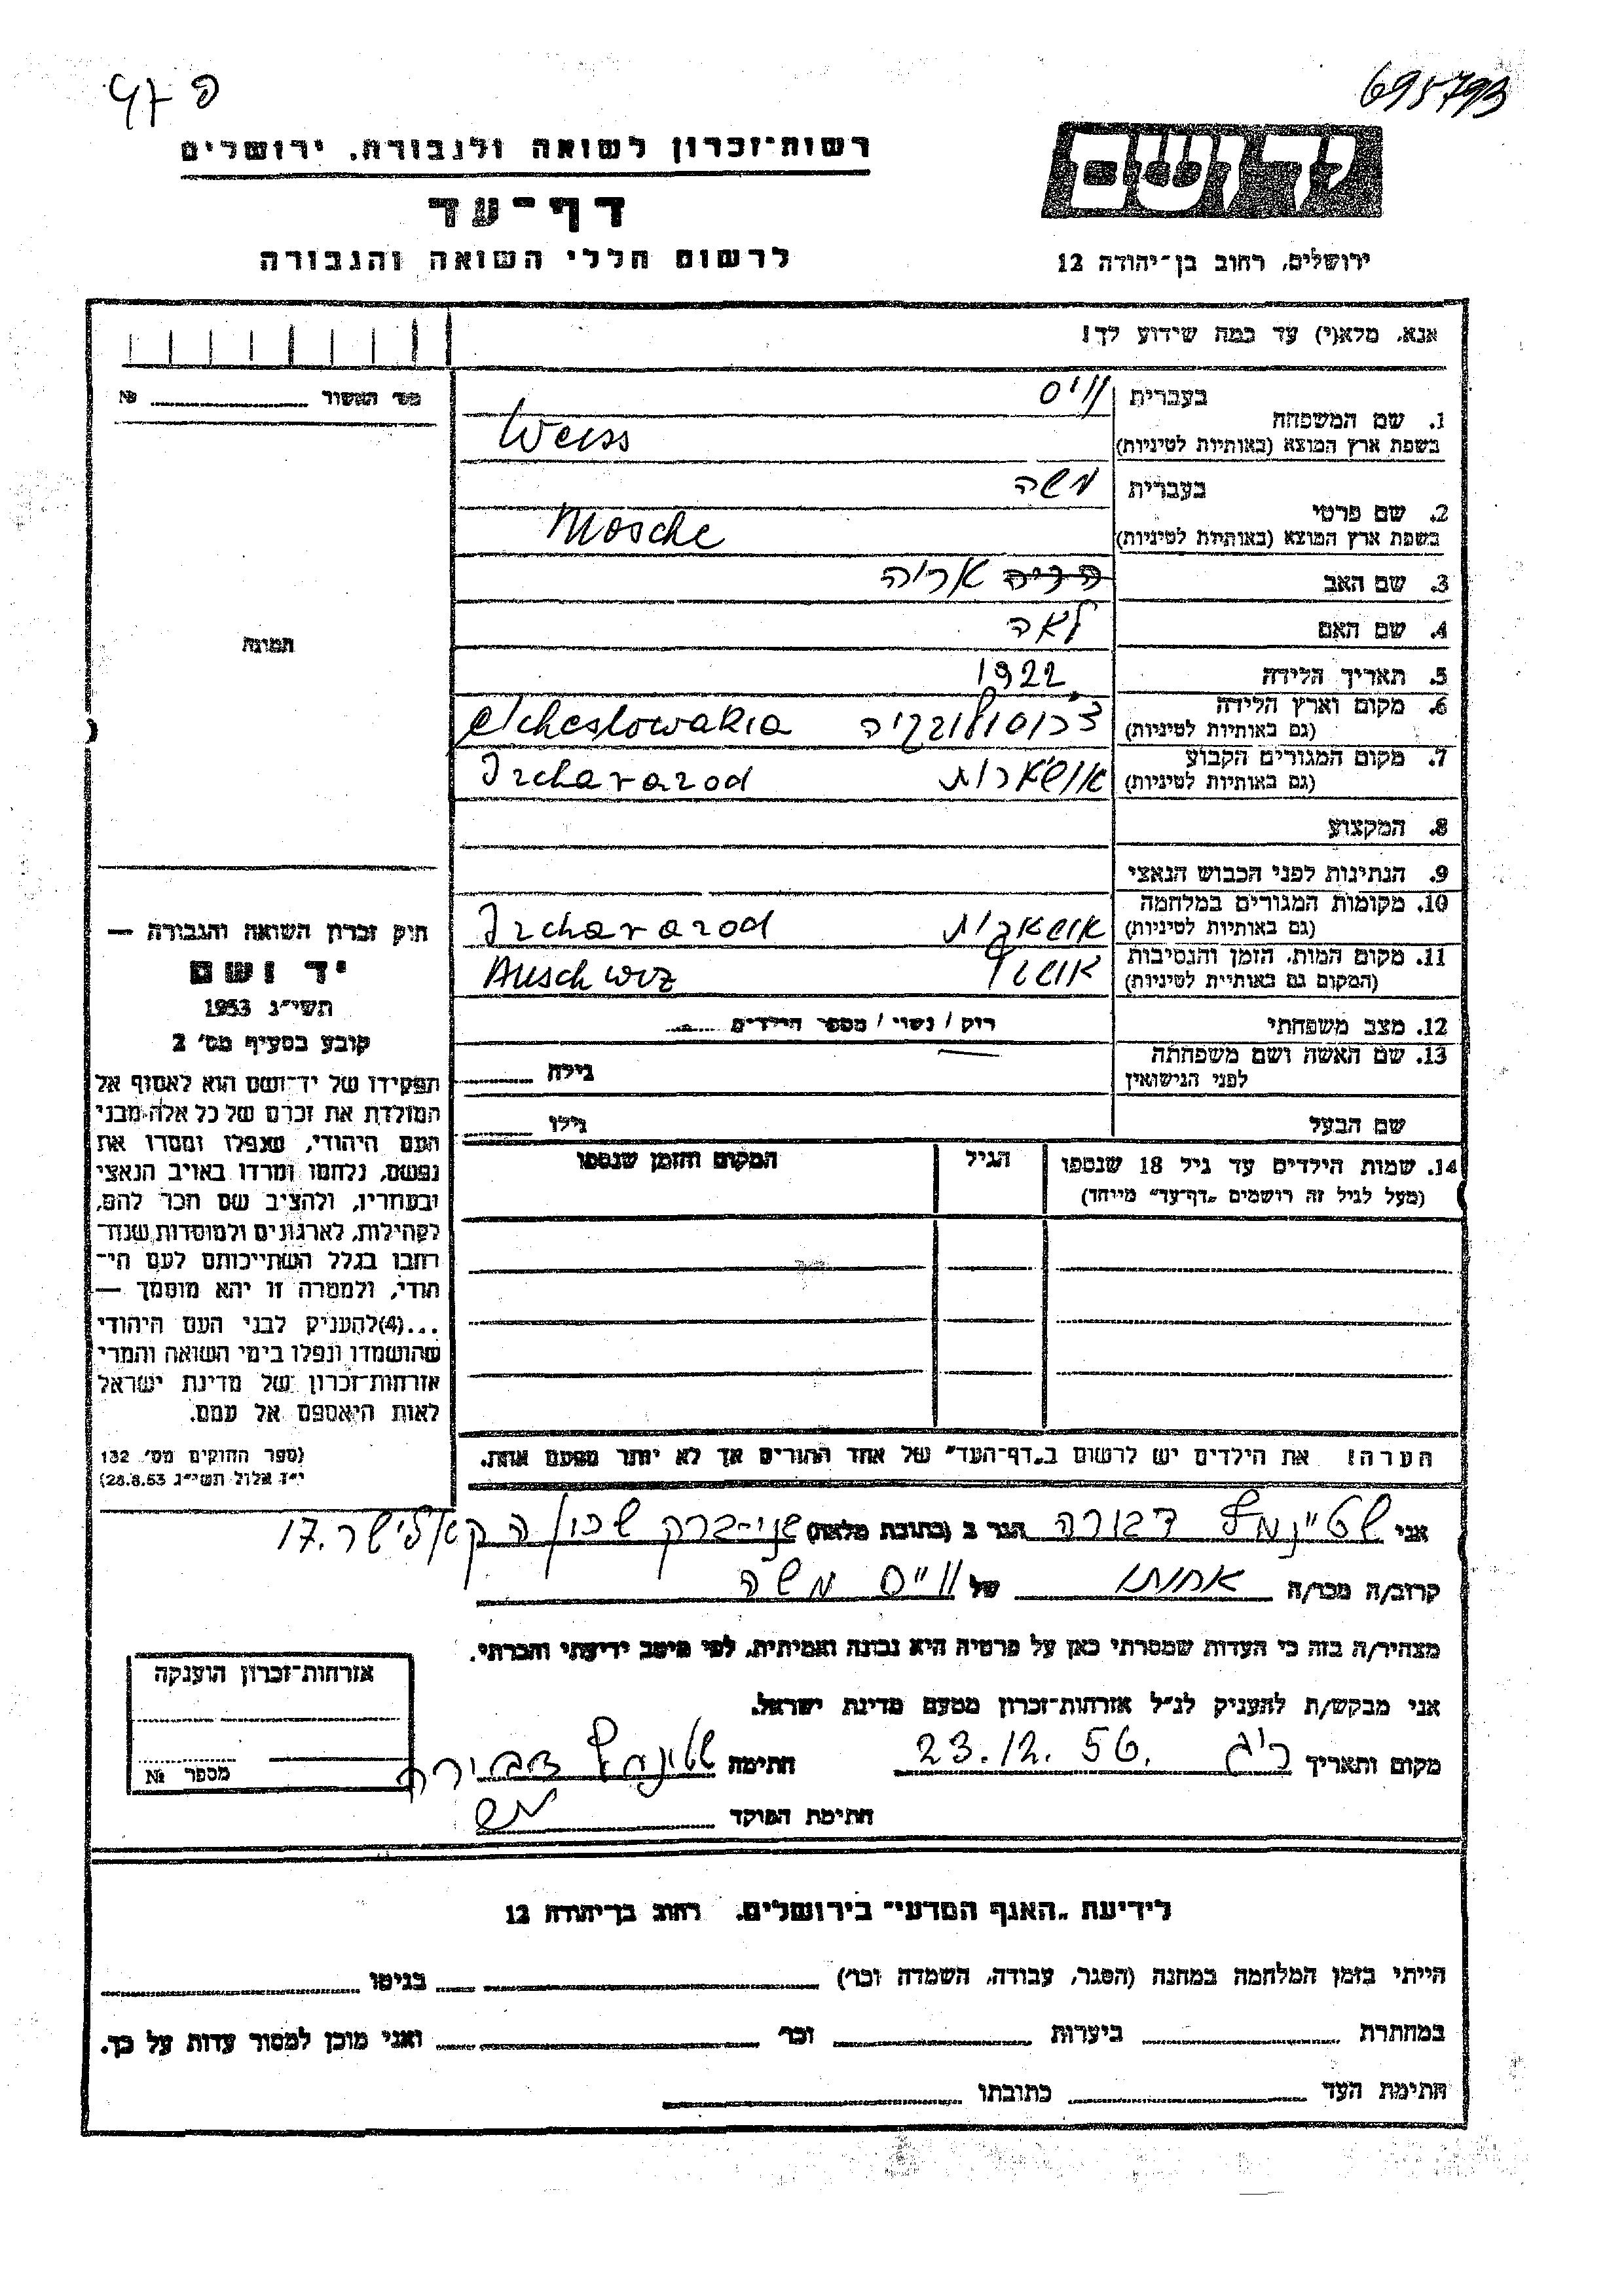 פ 47
695793
רשות־זכרון לשואה ולגבורה, ירושלים
דף־עד
לרשום חללי השואה והגבורה
יד ושם
ירושלים, רחוב בן־יהודה 12
אנא, מלא(י) עד כמה שידוע לך!
מס' האשור № 
1. שם המשפחה
בעברית ווייס
בשפת ארץ המוצא (באותיות לטיניות) Weiss
2. שם פרטי
בעברית משה
בשפת ארץ המוצא (באותיות לטיניות) Mosche
3. שם האב אריה
4. שם האם לאה
5. תאריך הלידה 1922
6. מקום וארץ הלידה
(גם באותיות לטיניות) צ'כוסלובקיה
7. מקום המגורים הקבוע
(גם באותיות לטיניות)
8. המקצוע
9. הנתינות לפני הכבוש הנאצי
10. מקומות המגורים במלחמה
(גם באותיות לטיניות)
11. מקום המות, הזמן והנסיבות
(המקום גם באותיית לטיניות)
12. מצב משפחתי רווק / נשוי / מספר הילדים
13. שם האשה ושם משפחתה
לפני הנישואין גילה
שם הבעל גילו
14. שמות הילדים עד גיל 18 שנספו הגיל המקום והזמן שנספו
(מעל לגיל זה רושמים „דף־עד" מיוחד)
תמונה
חוק זכרון השואה והגבורה —
יד ושם
תשי״ג 1953
קובע בסעיף מס׳ 2
תפקידו של יד־ושם הוא לאסוף אל
המולדת את זכרם של כל אלה מבני
העם היהודי, שנפלו ומסרו את
נפשם, נלחמו ומרדו באויב הנאצי
ובעוזריו, ולהציב שם וזכר להם,
לקהילות, לארגונים ולמוסדות שנח־
רבו בגלל השתייכותם לעם הי־
הודי, ולמטרה זו יהא מוסמך —
...(4)להעניק לבני העם היהודי
שהושמדו ונפלו בימי השואה והמרי
אזרחות־זכרון של מדינת ישראל
לאות היאספם אל עמם.
(ספר החוקים מס׳ 132
י״ז אלול תשי״ג 28.8.53)
הערה! את הילדים יש לרשום ב„דף־העד" של אחד ההורים אך לא יותר מפעם אחת.
אני דבורה הגר ב (כתובת מלאה) בני-ברק שכון ה 17.
קרוב/ה מכר/ה אחותו של ווייס משה
מצהיר/ה בזה כי העדות שמסרתי כאן על פרטיה היא נכונה ואמיתית, לפי מיטב ידיעתי והכרתי.
אני מבקש/ת להעניק לנ״ל אזרחות־זכרון מטעם מדינת ישראל.
מקום ותאריך 23.12.56. חתימה
חתימת הפוקד
אזרחות־זכרון הוענקה
מספר №
לידיעת „האגף המדעי" בירושלים, רחוב בן־יהודה 12
הייתי בזמן המלחמה במחנה (הסגר, עבודה, השמדה וכו') בגיטו
במחתרת ביערות וכו' ואני מוכן למסור עדות על כך.
חתימת העד כתובתו